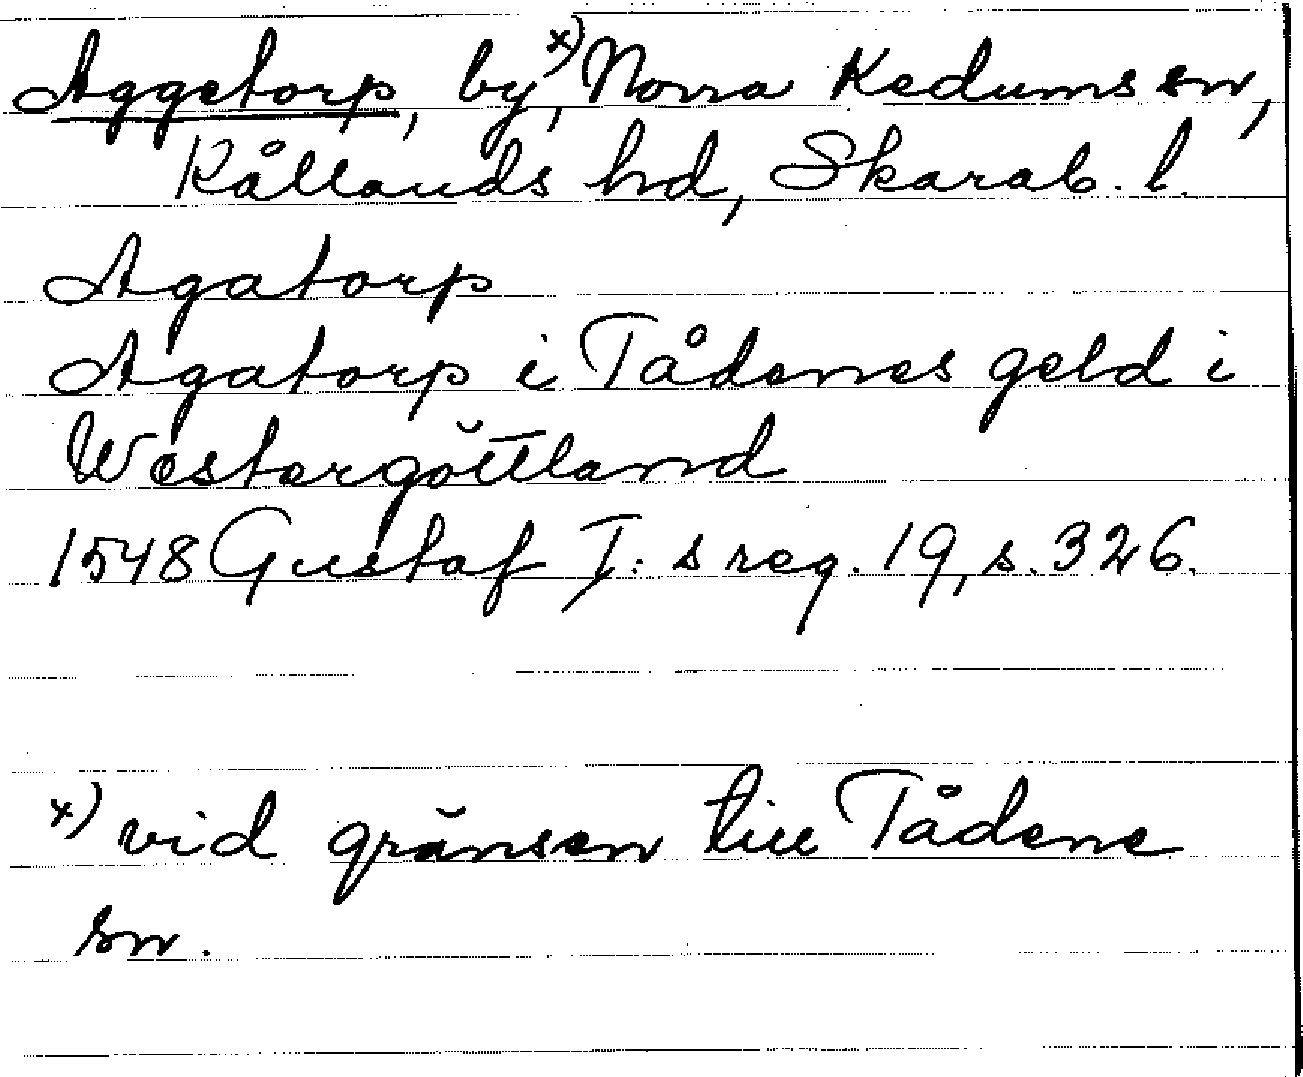 Aggetorp, by,ˣ⁾ Norra Kedums sn,
Kållands hd, Skarab. l.
Agatorp
Agatorp i Tådenes geld i
Westergöttland
1548 Gustaf I:s reg. 19, s. 326.
x) vid gränsen till Tådene
sn.